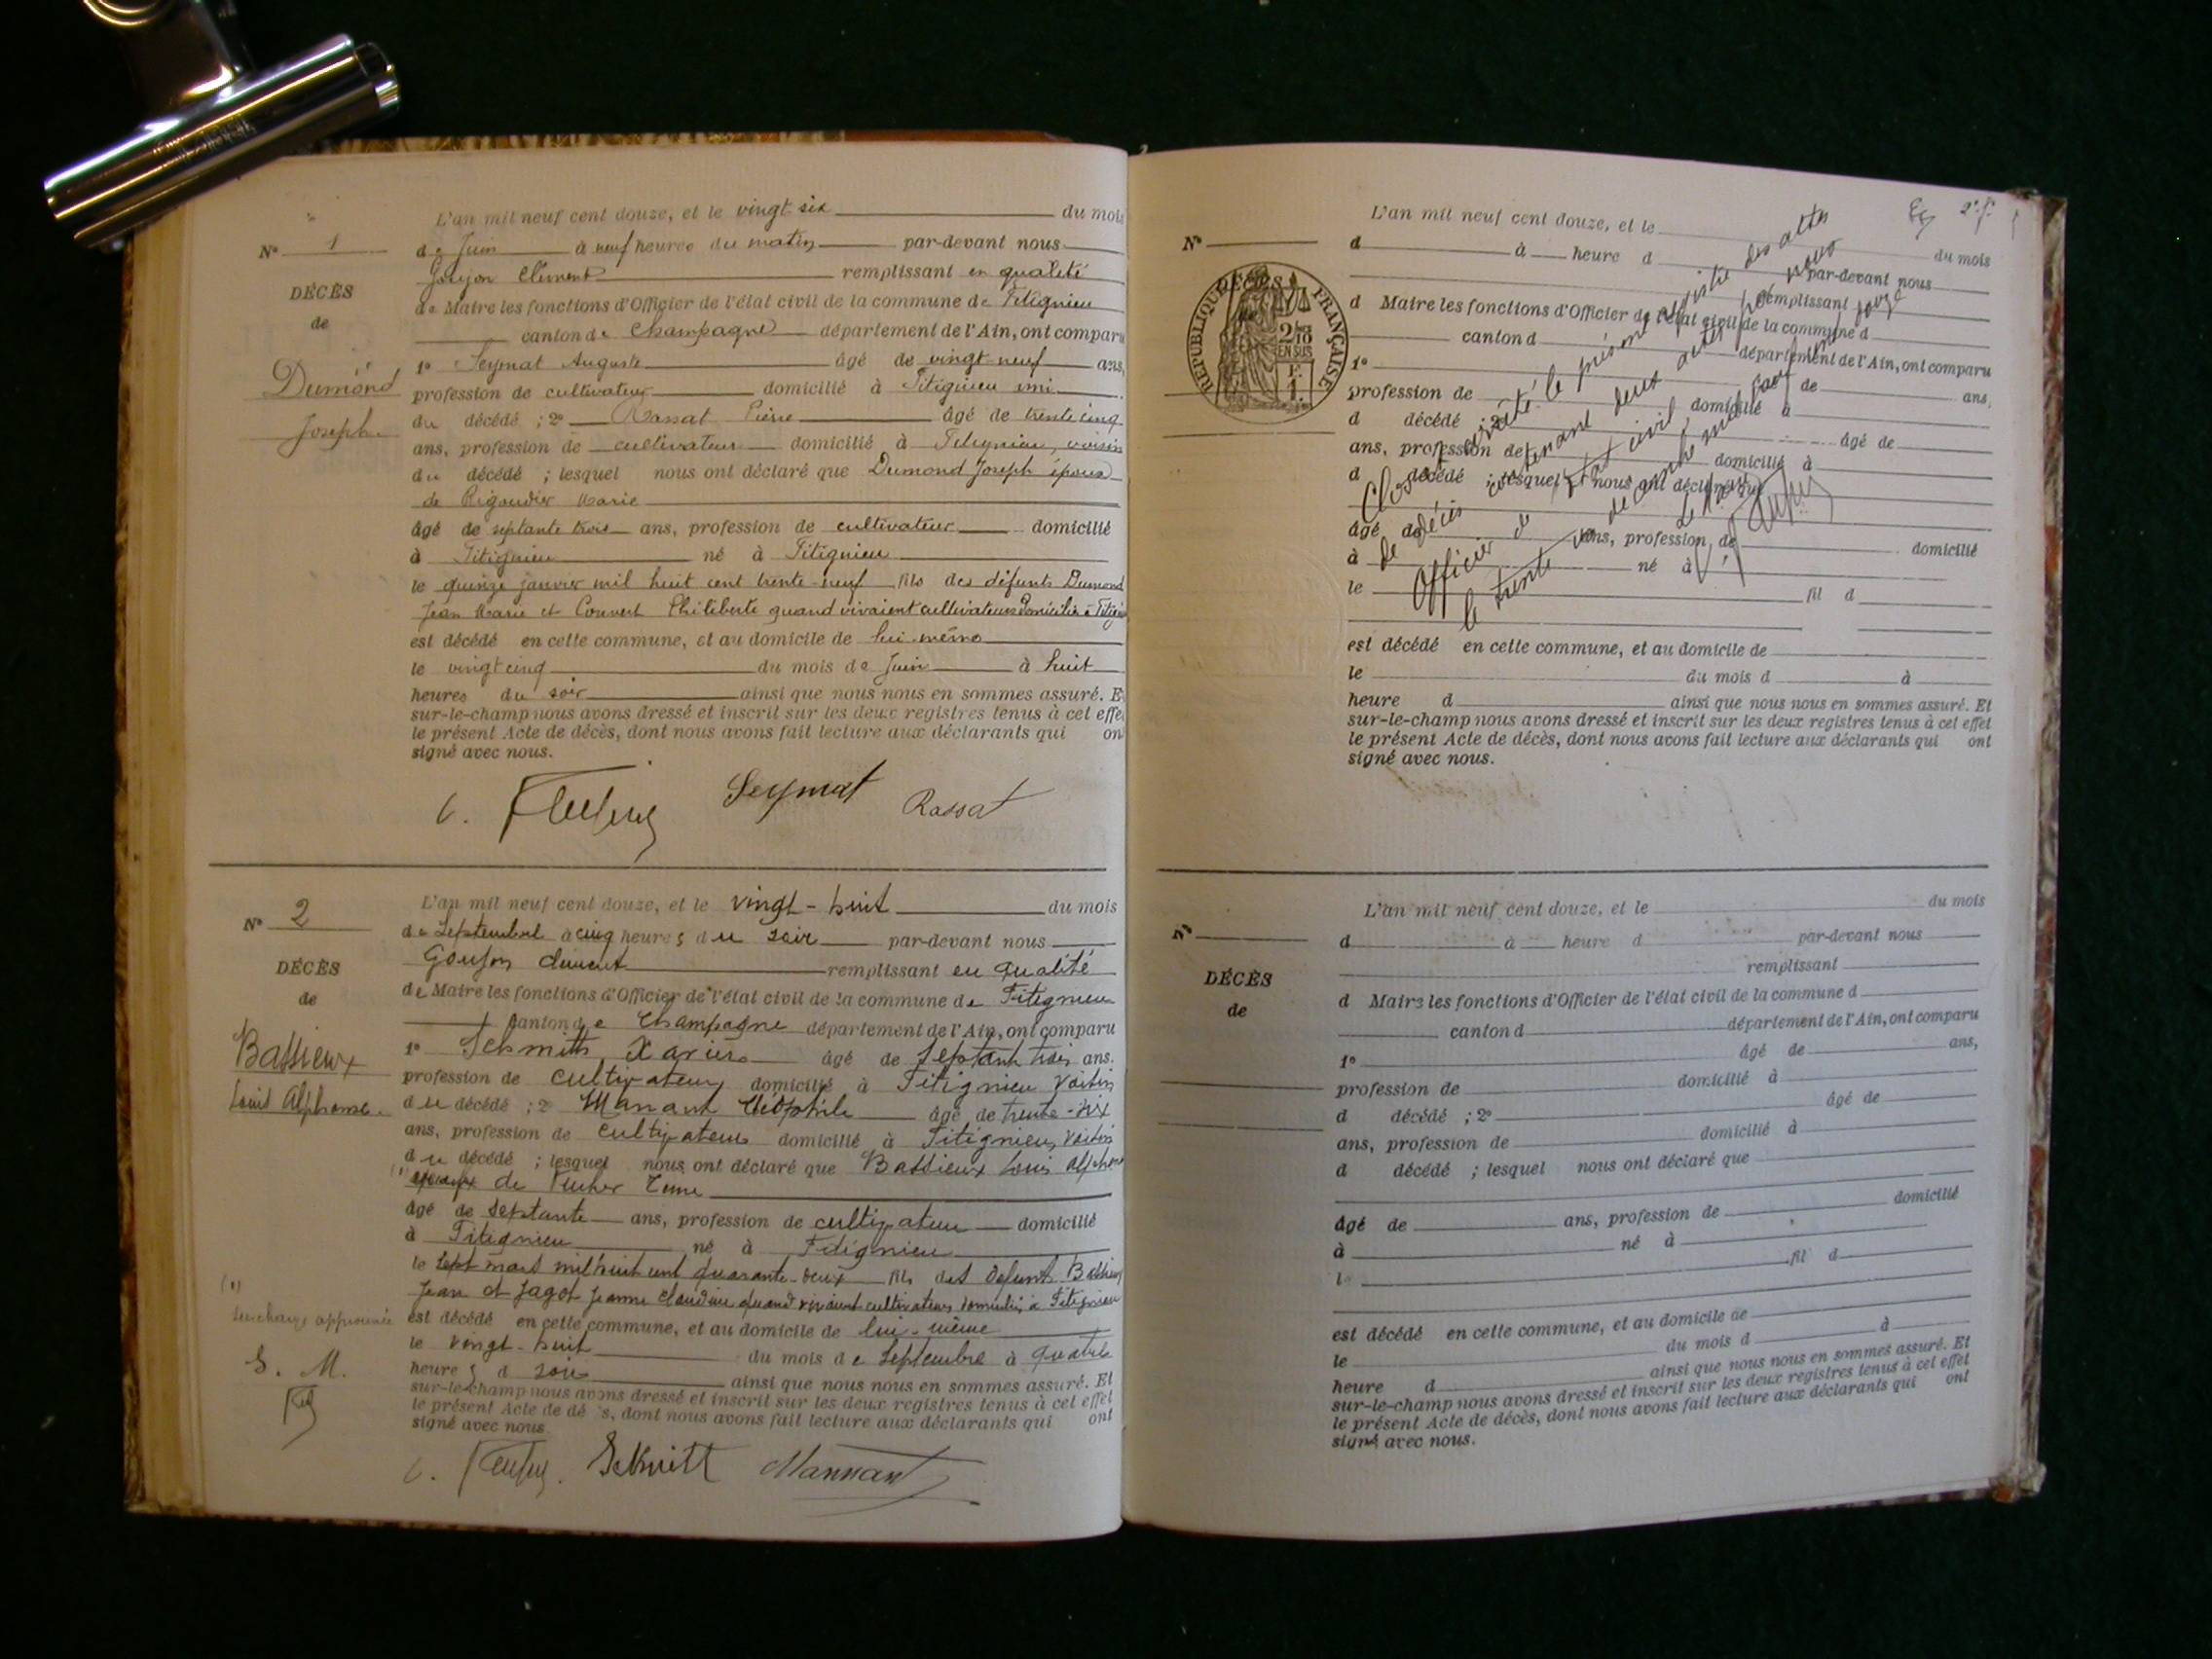 L'an mil neuf cent douze, et le vingt six du mois
N° 1
de Juin à neuf heures du matin par-devant nous
Goujon Clément remplissant en qualité
DÉCÈS
de Maire les fonctions d'Officier de l'état civil de la commune de Fitignieu
de
canton de Champagne département de l'Ain, ont comparu
1° Seymat Auguste âgé de vingt-neuf ans,
Dumond
profession de cultivateur domicilié à Fitignieu
du décédé ; 2° Rassat Pierre âgé de trente cinq
Joseph
ans, profession de cultivateur domicilié à Fitignieu, voisin
du décédé ; lesquel nous ont déclaré que Dumond Joseph époux
de Rigaudier Marie
âgé de septante trois ans, profession de cultivateur domicilié
à Fitignieu né à Fitignieu
le quinze janvier mil huit cent trente-neuf fils des défunts Dumond
Jean Marie et Couvert Philiberte quand vivaient cultivateurs domiciliés à Fitignieu
est décédé en cette commune, et au domicile de lui-même
le vingt cinq du mois de Juin à huit
heures du soir ainsi que nous nous en sommes assuré. E
sur-le-champ nous avons dressé et inscrit sur les deux registres tenus à cet effe
le présent Acte de décès, dont nous avons fait lecture aux déclarants qui on
signé avec nous.
Seymat Rassat
L'an mil neuf cent douze, et le vingt-huit du mois
N° 2
de Septembre à cinq heures du soir par-devant nous
Goujon Clément remplissant en qualité
DÉCÈS
de Maire les fonctions d'Officier de l'état civil de la commune de Fitignieu
de
canton de Champagne département de l'Ain, ont comparu
Bassieux
1° Schmitt Xavier âgé de septante trois ans.
profession de cultivateur domicilié à Fitignieu voisin
Louis Alphonse
du décédé ; 2° Manant Théophile âgé de trente-six
ans, profession de cultivateur domicilié à Fitignieu, voisin
du décédé ; lesquel nous ont déclaré que Bassieux Louis Alphonse
(1) époux de
âgé de septante ans, profession de cultivateur domicilié
à Fitignieu né à Fitignieu
le sept mars mil huit cent quarante-deux fils des défunts Bassieux
(1)
Jean et Jagot Jeanne Claudine quand vivaient cultivateurs domiciliés à Fitignieu
surcharge approuvée
est décédé en cette commune, et au domicile de lui-même
le vingt-huit du mois de Septembre à quatre
S. M.
heures d soir ainsi que nous nous en sommes assuré. Et
sur-le-champ nous avons dressé et inscrit sur les deux registres tenus à cet effet
le présent Acte de dé s, dont nous avons fait lecture aux déclarants qui ont
signé avec nous.
Schmitt Mannant
2° f.
L'an mil neuf cent douze, et le du mois
N°
d à heure d par-devant nous
remplissant
RÉPUBLIQUE FRANÇAISE
2/10 EN SUS
d Maire les fonctions d'Officier de l'état civil de la commune d
canton d département de l'Ain, ont comparu
1° âgé de ans,
profession de domicilié à
d décédé ; 2° âgé de
ans, profession de domicilié à
d décédé ; lesquel nous ont déclaré que
âgé de ans, profession de domicilié
à né à
le fil d
Clos et arrêté le présent registre des actes
de décès contenant deux actes par nous
Officier de l'état civil
le trente un décembre mil neuf cent douze
Le Maire
est décédé en cette commune, et au domicile de
le du mois d à
heure d ainsi que nous nous en sommes assuré. Et
sur-le-champ nous avons dressé et inscrit sur les deux registres tenus à cet effet
le présent Acte de décès, dont nous avons fait lecture aux déclarants qui ont
signé avec nous.
L'an mil neuf cent douze, et le du mois
N°
d à heure d par-devant nous
remplissant
DÉCÈS
d Maire les fonctions d'Officier de l'état civil de la commune d
de
canton d département de l'Ain, ont comparu
1° âgé de ans,
profession de domicilié à
d décédé ; 2° âgé de
ans, profession de domicilié à
d décédé ; lesquel nous ont déclaré que
âgé de ans, profession de domicilié
à né à
l fil d
est décédé en cette commune, et au domicile de
le du mois d à
heure d ainsi que nous nous en sommes assuré. Et
sur-le-champ nous avons dressé et inscrit sur les deux registres tenus à cet effet
le présent Acte de décès, dont nous avons fait lecture aux déclarants qui ont
signé avec nous.